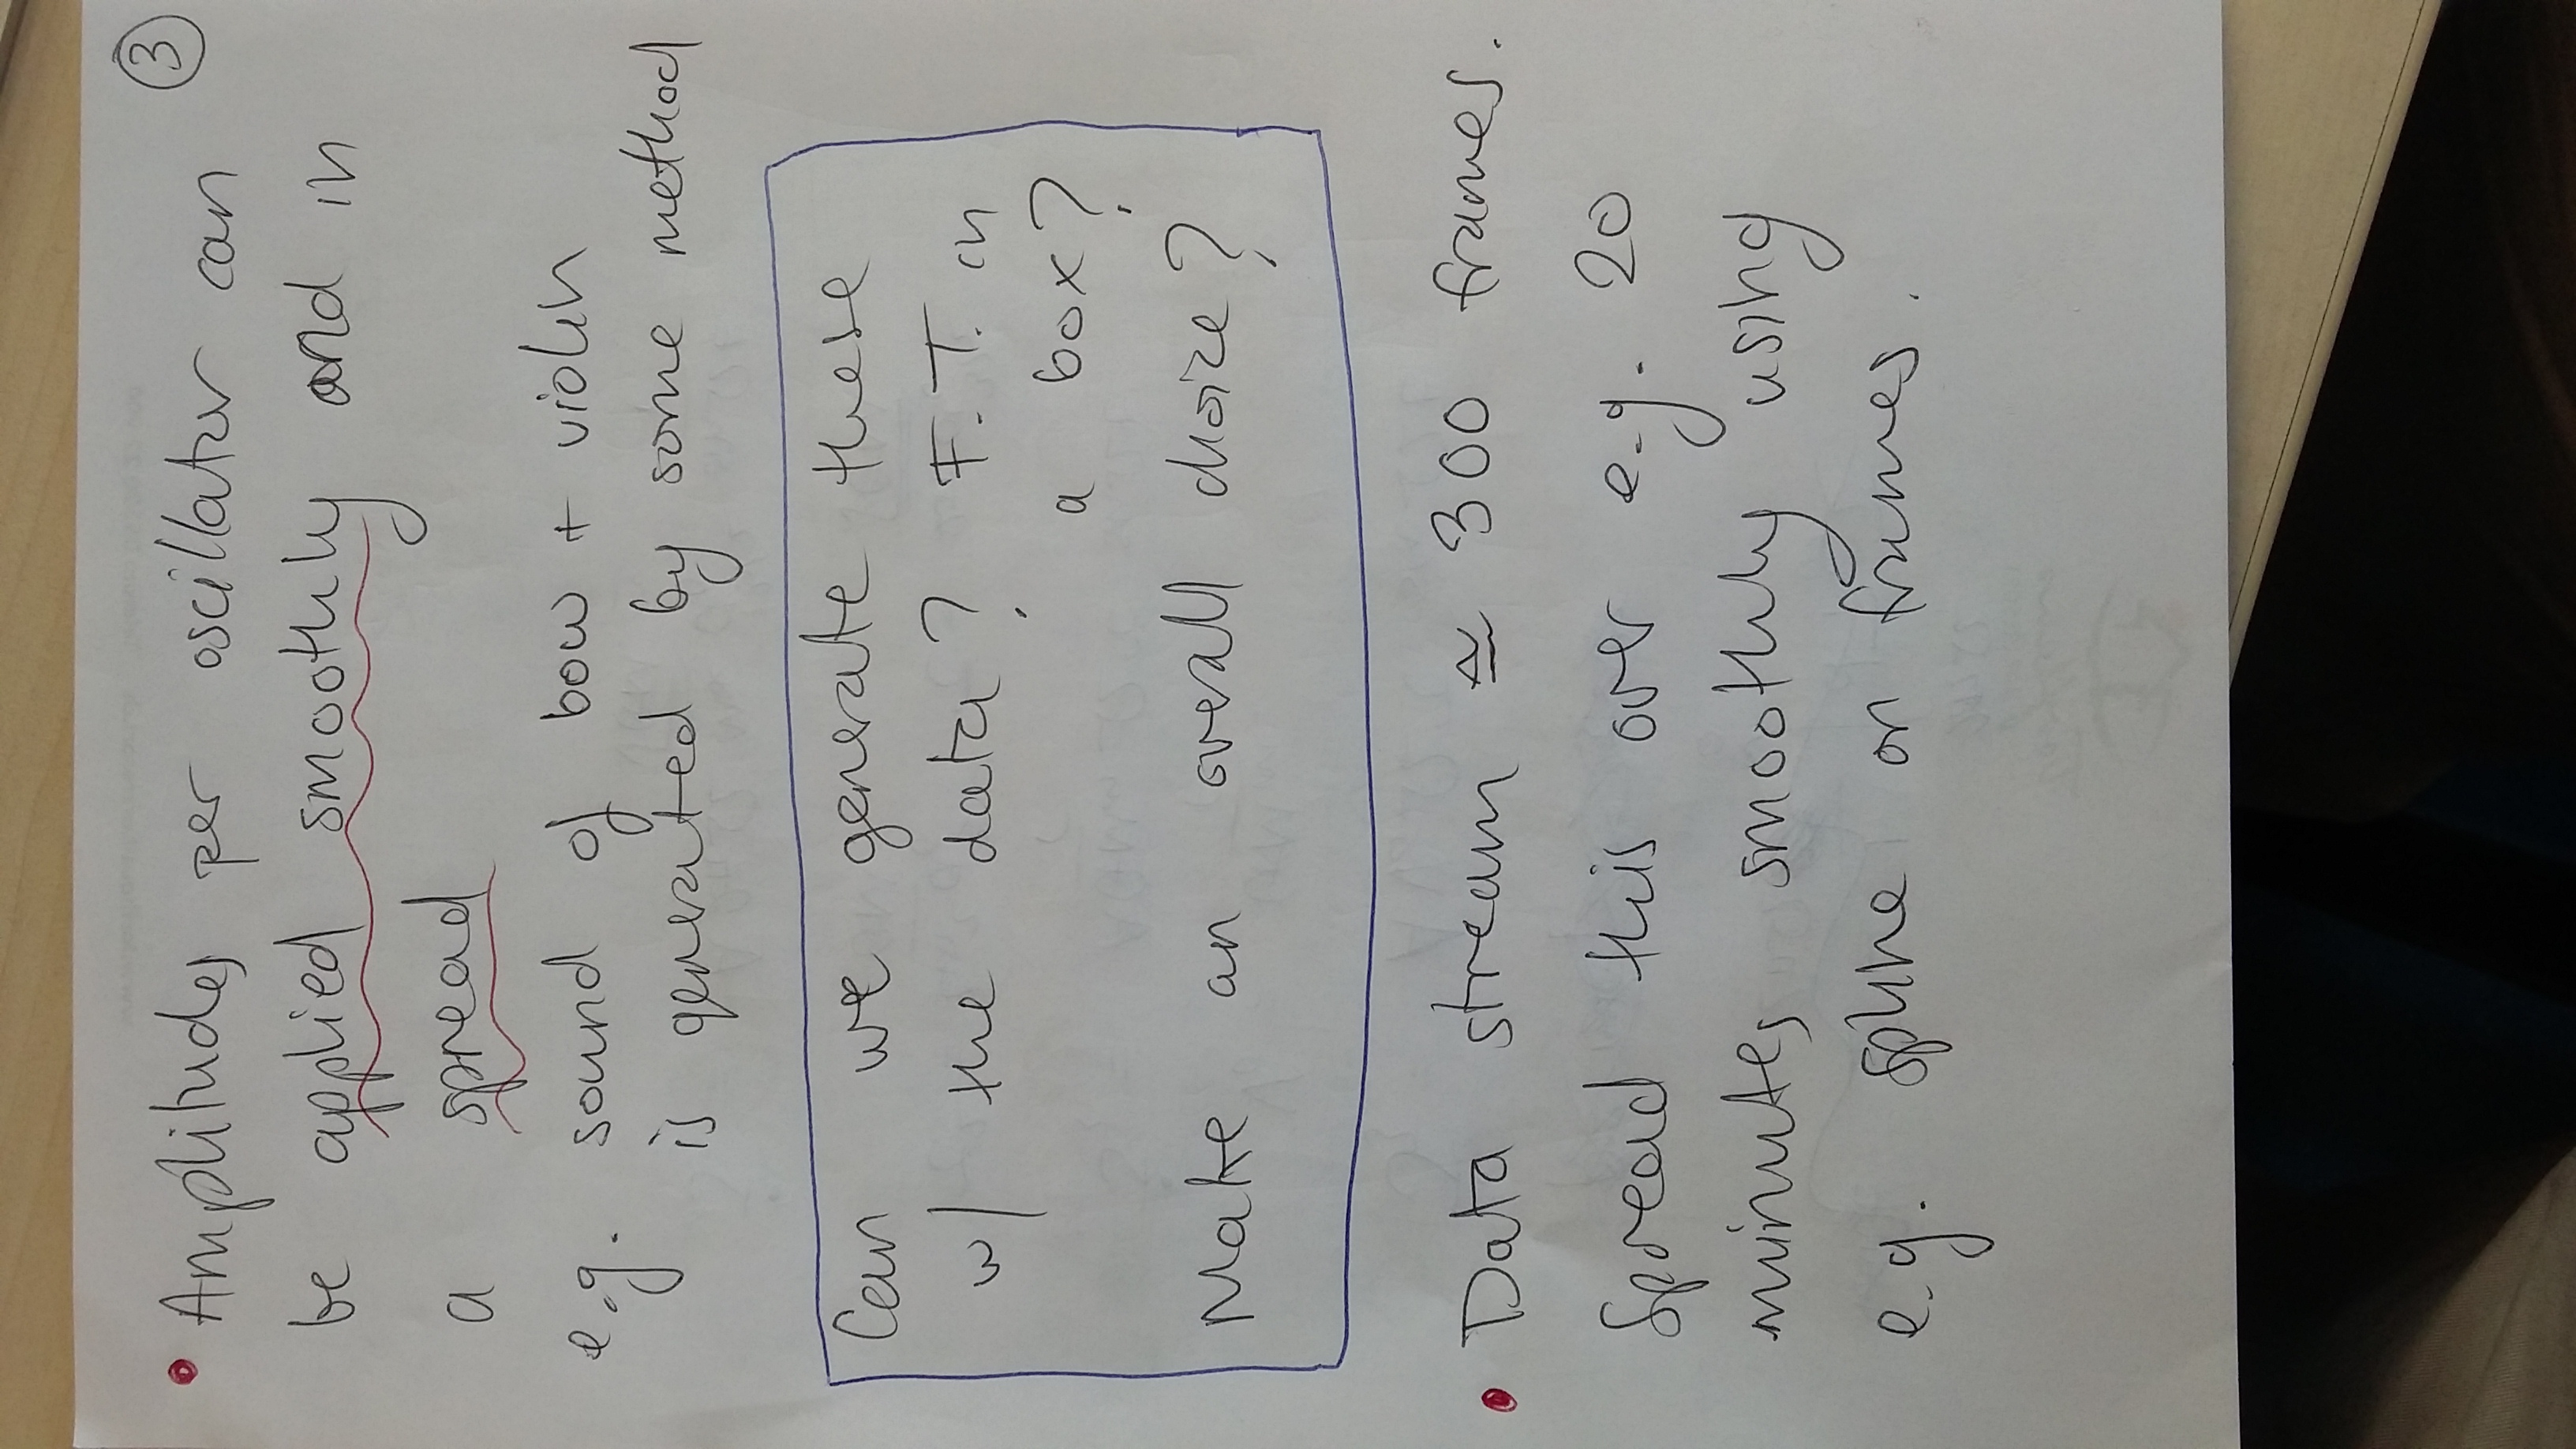 3
• Amplitudes per oscillator can
be applied smoothly and in
a spread
e.g. sound of bow + violin
is generated by some method
Can we generate these
w/ the data? F.T. in
a box?
Make an overall choice?
• Data stream ≃ 300 frames.
Spread this over e.g. 20
minutes smoothly using
e.g. spline on frames.